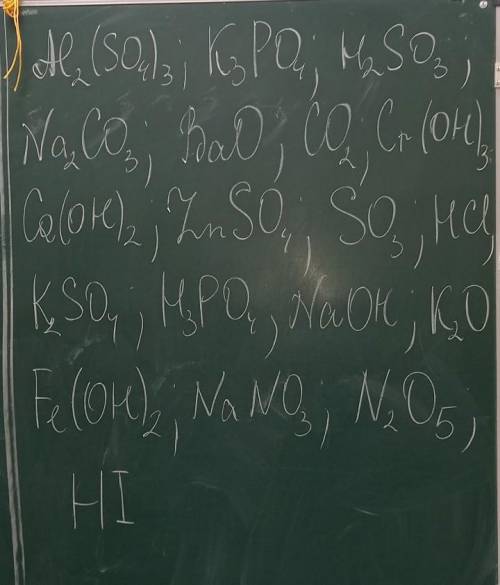 Al₂(SO₄)₃; K₃PO₄; H₂SO₃;
Na₂CO₃; BaO; CO₂; Cr(OH)₃
Ca(OH)₂; ZnSO₄; SO₃; HCl,
K₂SO₄; H₃PO₄; NaOH; K₂O
Fe(OH)₂; NaNO₃; N₂O₅;
HI